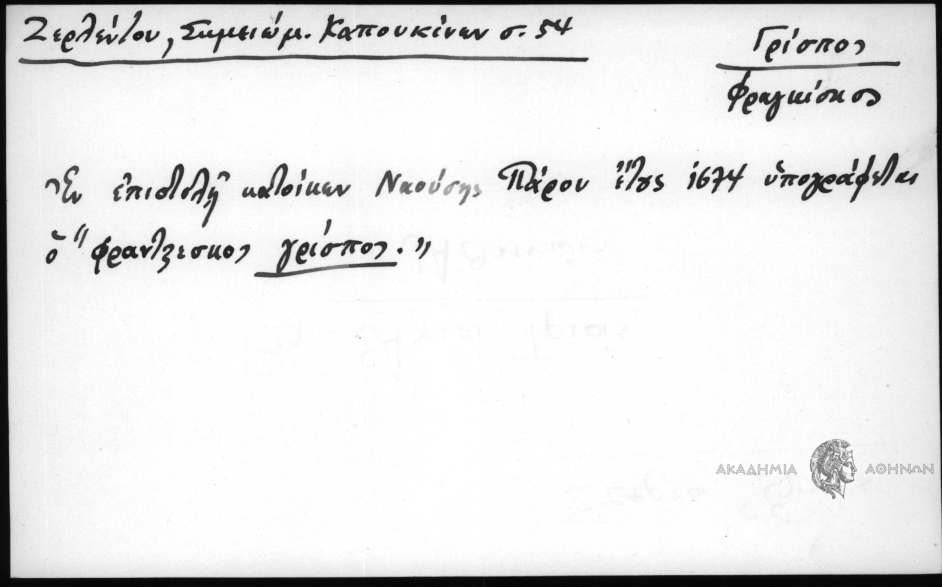 Ζερλέντου, Σημειώμ. Καπουκίνων σ. 54
Γρίσπος
Φραγκίσκος
Ἐν ἐπιστολῇ κατοίκων Ναούσης Πάρου ἔτους 1674 ὑπογράφεται
ὁ "φραντζεσκος γρίσπος."
ΑΚΑΔΗΜΙΑ ΑΘΗΝΩΝ